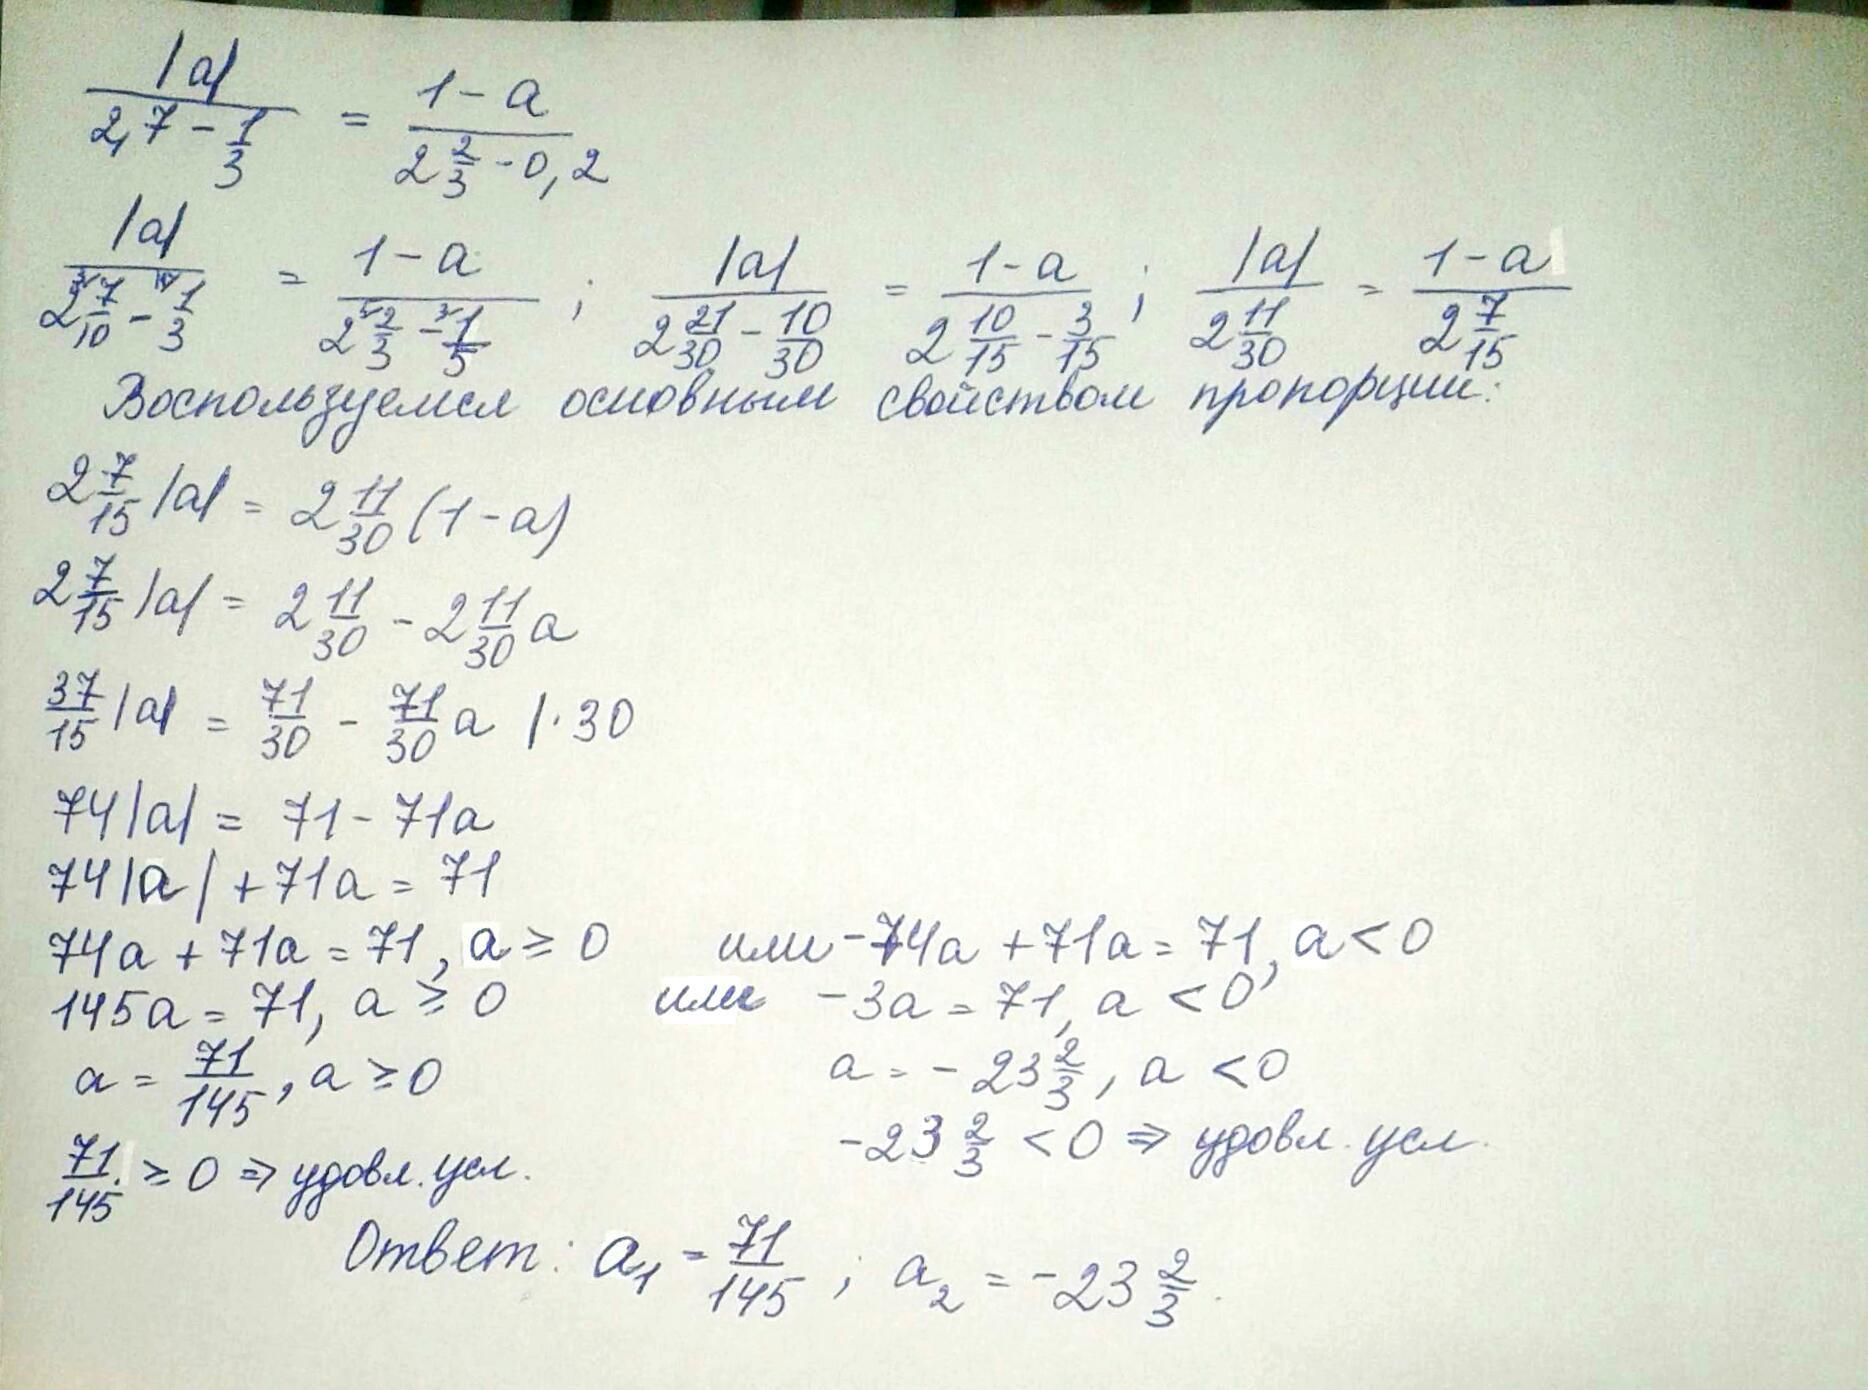 |a|/(2,7 - 1/3) = (1 - a)/(2 2/3 - 0,2)
|a|/(2 7/10 - 1/3) = (1 - a)/(2 2/3 - 1/5) ; |a|/(2 21/30 - 10/30) = (1 - a)/(2 10/15 - 3/15) ; |a|/(2 11/30) = (1 - a)/(2 7/15)
Воспользуемся основным свойством пропорции:
2 7/15 |a| = 2 11/30 (1 - a)
2 7/15 |a| = 2 11/30 - 2 11/30 a
37/15 |a| = 71/30 - 71/30 a | · 30
74|a| = 71 - 71a
74|a| + 71a = 71
74a + 71a = 71, a ≥ 0 или -74a + 71a = 71, a < 0
145a = 71, a ≥ 0 или -3a = 71, a < 0
a = 71/145, a ≥ 0 a = -23 2/3, a < 0
71/145 ≥ 0 ⇒ удовл. усл. -23 2/3 < 0 ⇒ удовл. усл.
Ответ: a₁ = 71/145 ; a₂ = -23 2/3.